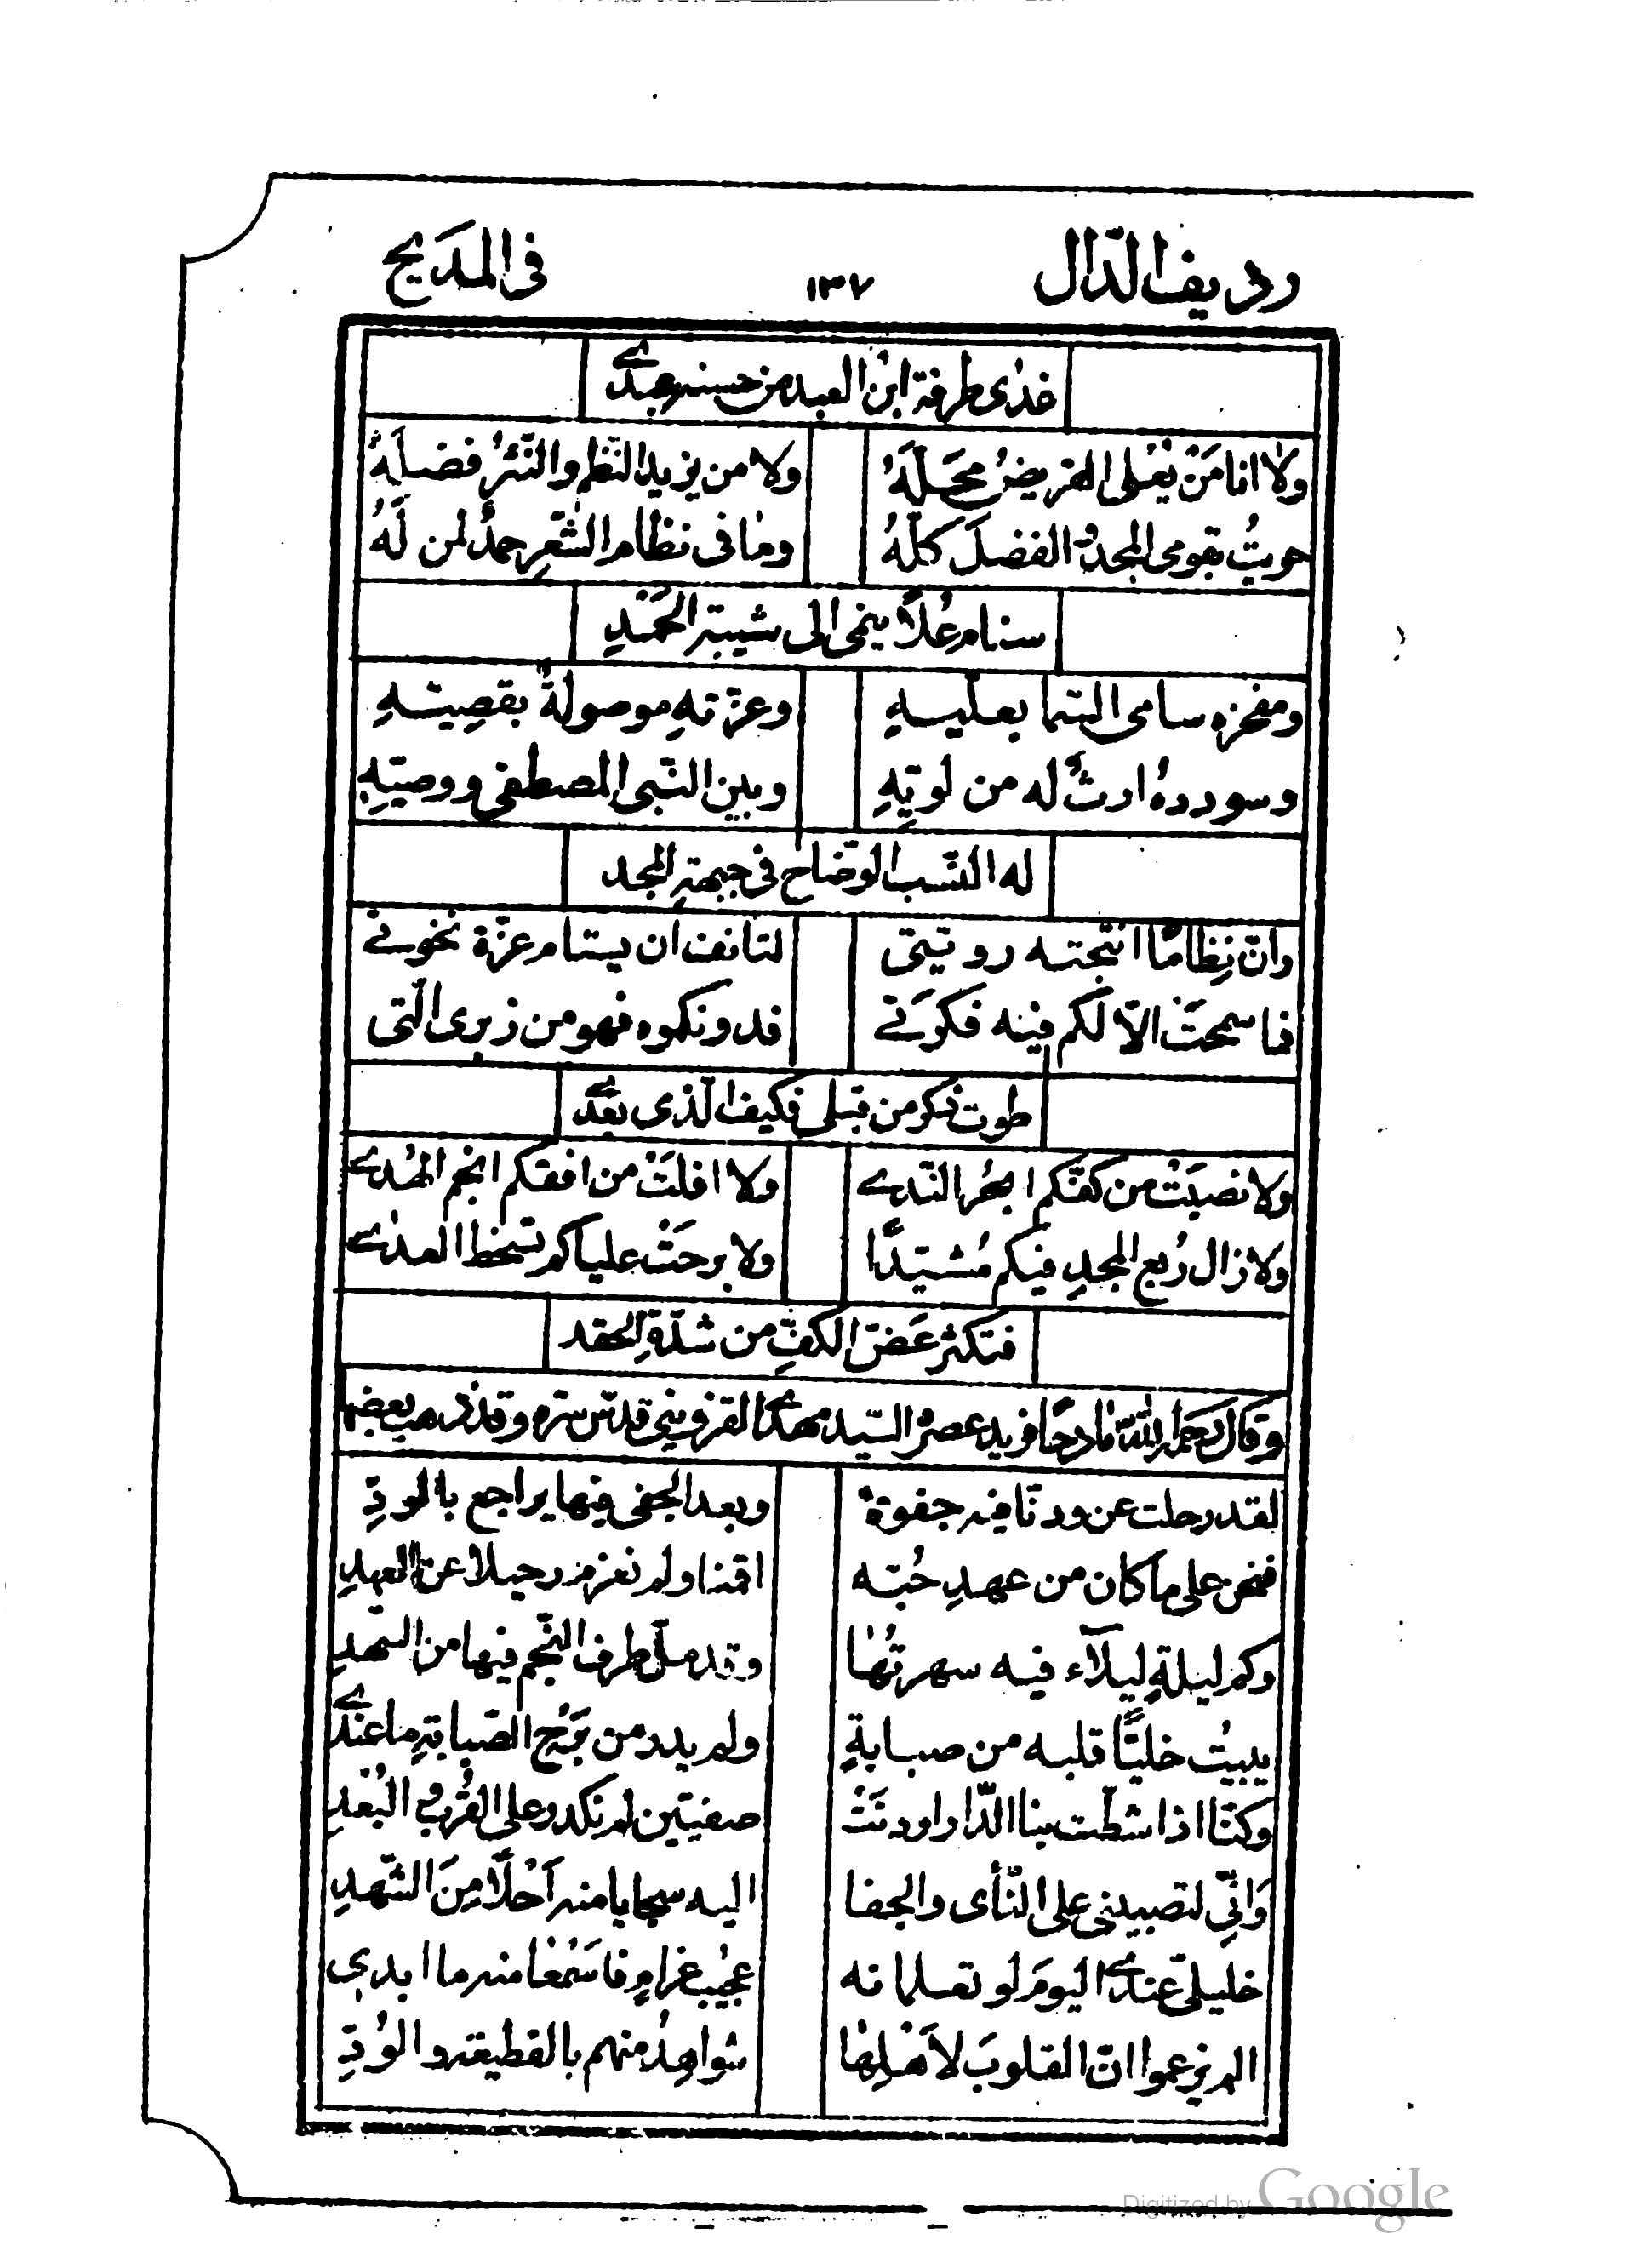 رديف الدّال ١٣٧ في المديح
غدٰى طرفة ابن العبد من حسنه عبدے
ولا انا مَنْ يُعْلى القريضُ محَلَّهُ ولا من يزيد النّظم والنّثرُ فضلَهُ
حويتُ بقومى المجدَ الفضلَ كلّهُ وما فى نظام الشّعرِ حمدٌ لمن لَهُ
سنام عُلاً ينمى الى شيبة الحَمْدِ
ومفخره سامى السّما بعليـهِ وعزّتهِ موصولةٌ بقصِيّـهِ
وسودده ارثٌ له من لويّهِ وبين النّبى المصطفى ووصيّهِ
له النّسب الوضّاح فى جبهة المجد
وانّ نِظاماً انتجته رويّتى لتانف ان يستام عزّة نخوتے
فما سمحَتْ الّا لكم فيه فكرَتے فدونكموه فهو من زبرى الّتى
طوت ذكر من قبلى فكيف الّذى بعدے
ولا نضبَتْ من كفّكم ابحُر النّدے ولا افلَتْ من افقكم انجم الهُدے
ولا زال رُبع المجدِ فيكم مُشيّدًا ولا برحَتْ علياكم تسخط العدٰے
فتكثر عَضّ الكفِّ من شدّةِ الحقد
وقال رحمه الله مادحًا فريد عصره السّيد مهدے القزوينى قدّس سرّه وقد ذهب بعضها
لقد رحلت عن ودنّا فيه جفوة وبعد الجفى فيها يراجع بالودِّ
فنحن على ما كان من عهدِ حُبّه اقمنا ولم نعزم رحيلا عن العهدِ
وكم ليلةٍ ليلآء فيه سهرتُهٰا وقد ملّ طرف النّجم فيها من السّهدِ
يبيتُ خليًّا قلبه من صبابةٍ ولم يدر من بَرْحِ الصّبابةِ ما عندے
وكنّا اذا شطّت بنا الدّار اودنَتْ صفيّين لم نكدر على القُرب والبُعْدِ
وَانِّى لتصبينى على النّأى والجفا اليه سجايا منه اَحْلَا مِنَ الشّهدِ
خليلىّ عندے اليومَ لو تعلمانه عجيْب غرامٍ فاسْمَعٰا منه ما ابدى
الم يزعموا انّ القلوبَ لاَهْلِهٰا شواهِدُ منهم بالقطيعة والوُدِّ
Digitized by Google